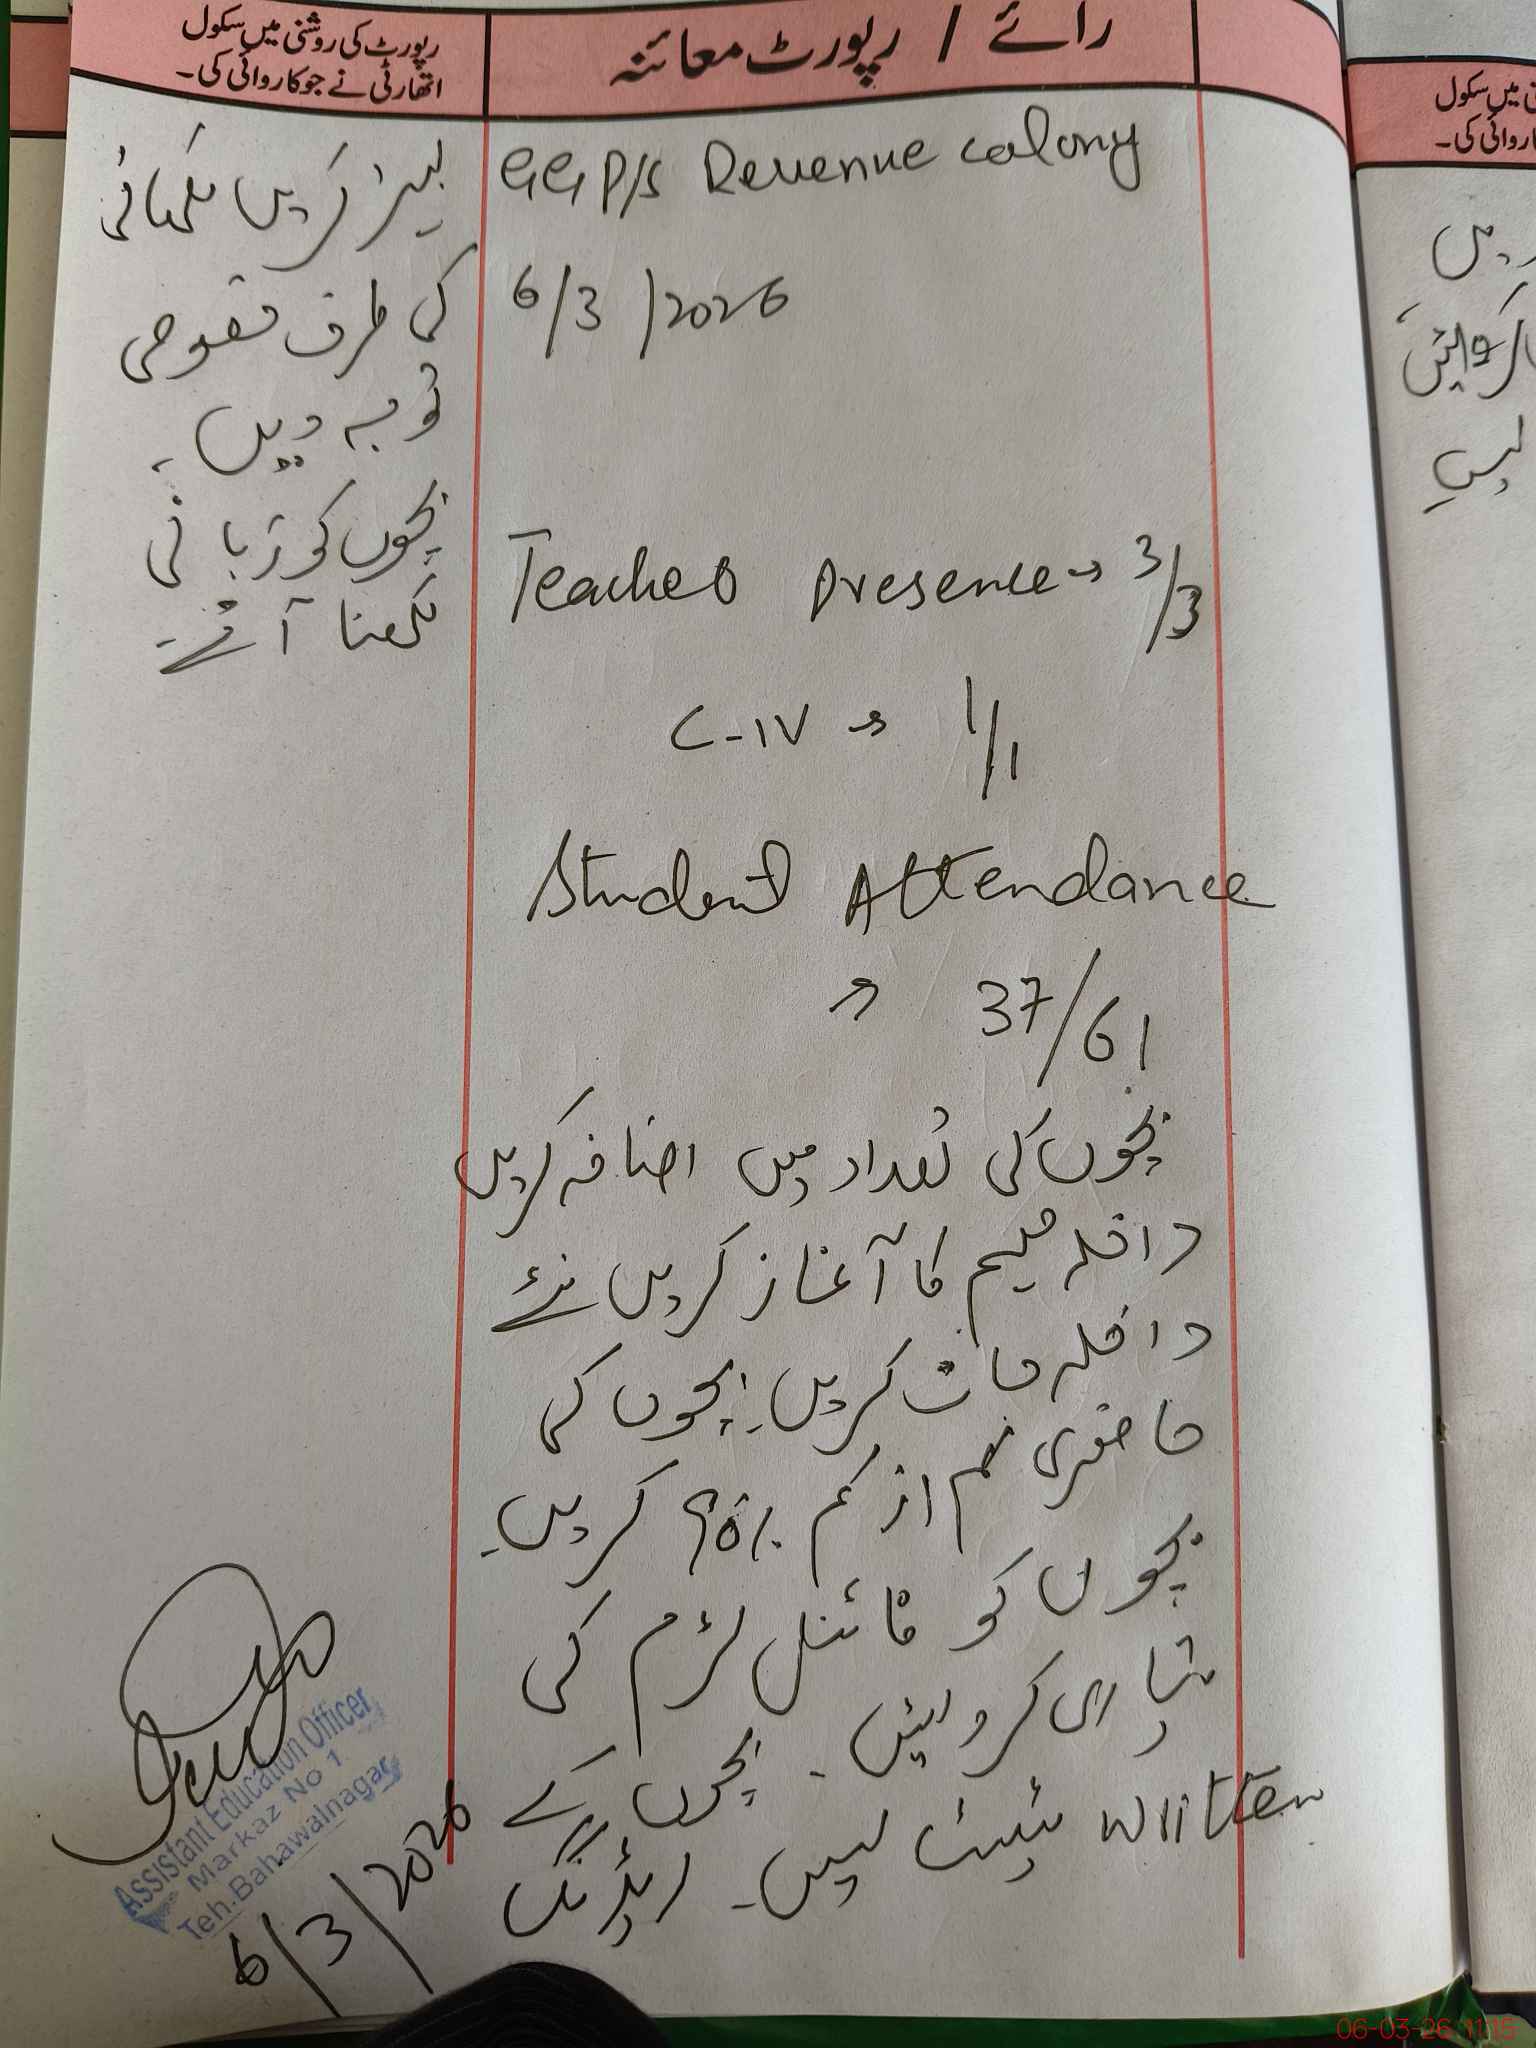 رائے / رپورٹ معائنہ
رپورٹ کی روشنی میں سکول
اتھارٹی نے جو کاروائی کی۔
GGP/S Revenue colony
6/3/2026
Teacher Presence → 3/3
C-IV → 1/1
Student Attendance
→ 37/61
بچوں کی تعداد میں اضافہ کریں
داخلہ مہیم کا آغاز کریں نئے
داخلہ جات کریں۔ بچوں کی
حاضری کم از کم 90% کریں۔
بچوں کو فائنل ٹرم کی
تیاری کروائیں۔ بچوں کے
written ٹیسٹ لیں۔ ریڈنگ
بہتر کریں لکھائی
کی طرف خصوصی
توجہ دیں۔
بچوں کو زبانی
لکھنا آئے۔
Assistant Education Officer
Markaz No 1
Teh. Bahawalnagar
6/3/2026
میں سکول
کاروائی کی۔
لیں
06-03-26 11:15